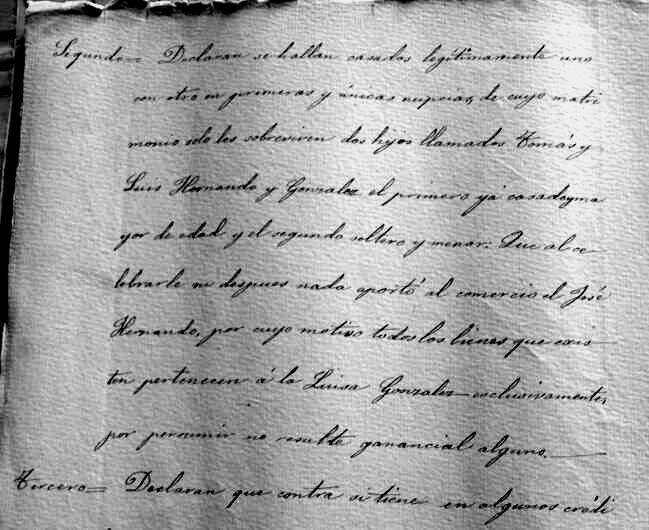 Segundo= Declaran se hallan casados legítimamente uno
con otro en primeras y únicas nupcias, de cuyo matri
monio solo les sobreviven dos hijos llamados Tomás y
Luis Hernando y Gonzalez el primero yá casado y ma
yor de edad y el segundo soltero y menor: Que al ce
lebrarle ni despues nada aportó al comercio el José
Hernando, por cuyo motivo todos los bienes que exis
ten pertenecen á la Luisa Gonzalez esclusivamente,
por presumir no resulte ganancial alguno.
Tercero= Declaran que contra si tiene en algunos crédi